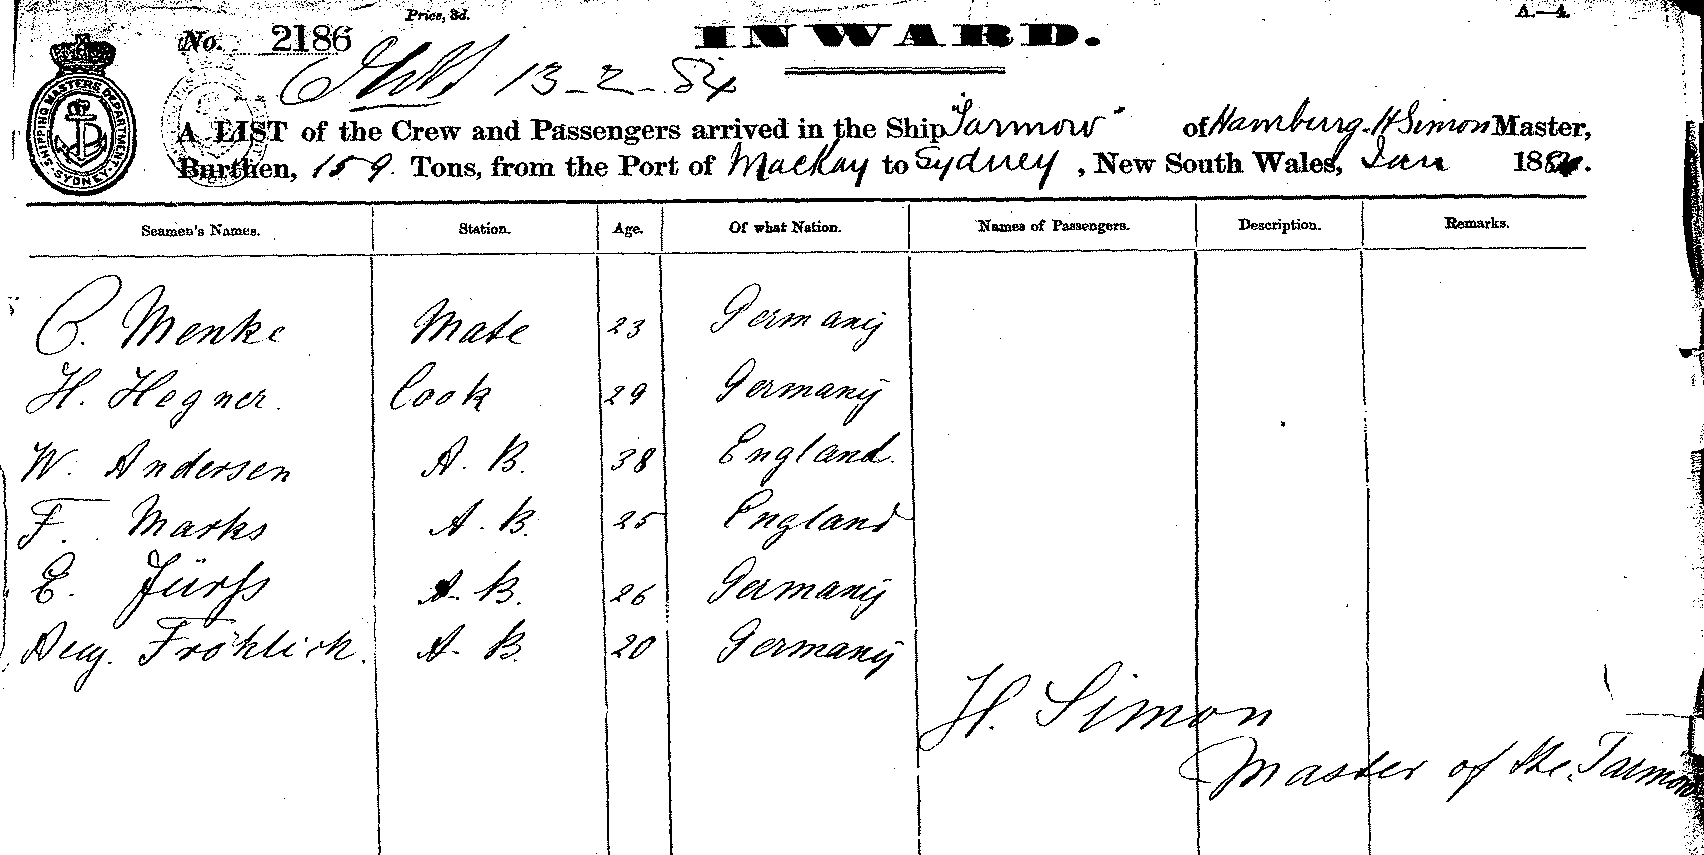 Price, 3d.
A.—4.
No. 2186
INWARD.
13-2-84
SHIPPING MASTERS DEPARTMENT SYDNEY
A LIST of the Crew and Passengers arrived in the Ship "Tarmow" of Hamburg. H Simon Master,
Burthen, 159. Tons, from the Port of Mackay to Sydney, New South Wales, Jan 188
Seamen's Names. Station. Age. Of what Nation. Names of Passengers. Description. Remarks.
C. Menke Mate 23 Germany
H. Hegner. Cook 29 Germany
W. Andersen A. B. 38 England.
F. Marks A. B. 25 England
E. Fürss A. B. 26 Germany
Aug. Fröhlich. A. B. 20 Germany
H. Simon
Master of the Tarmow